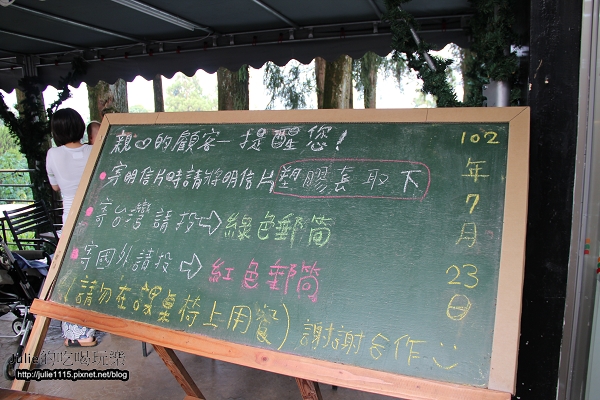 親♡的顧客一提醒您!
•寄明信片時請將明信片塑膠套取下
•寄台灣請投⇨綠色郵筒
•寄國外請投⇨紅色郵筒
(請勿在課桌椅上用餐)謝謝合作
102年7月23日
Julie的吃喝玩樂
http://julie1115.pixnet.net/blog